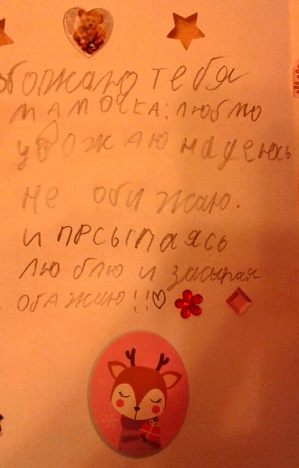 обожаю тебя
мамочка: люблю
увожаю надеюсь
не обижаю.
и прсыпаясь
люблю и засыпая
обажаю!!♡